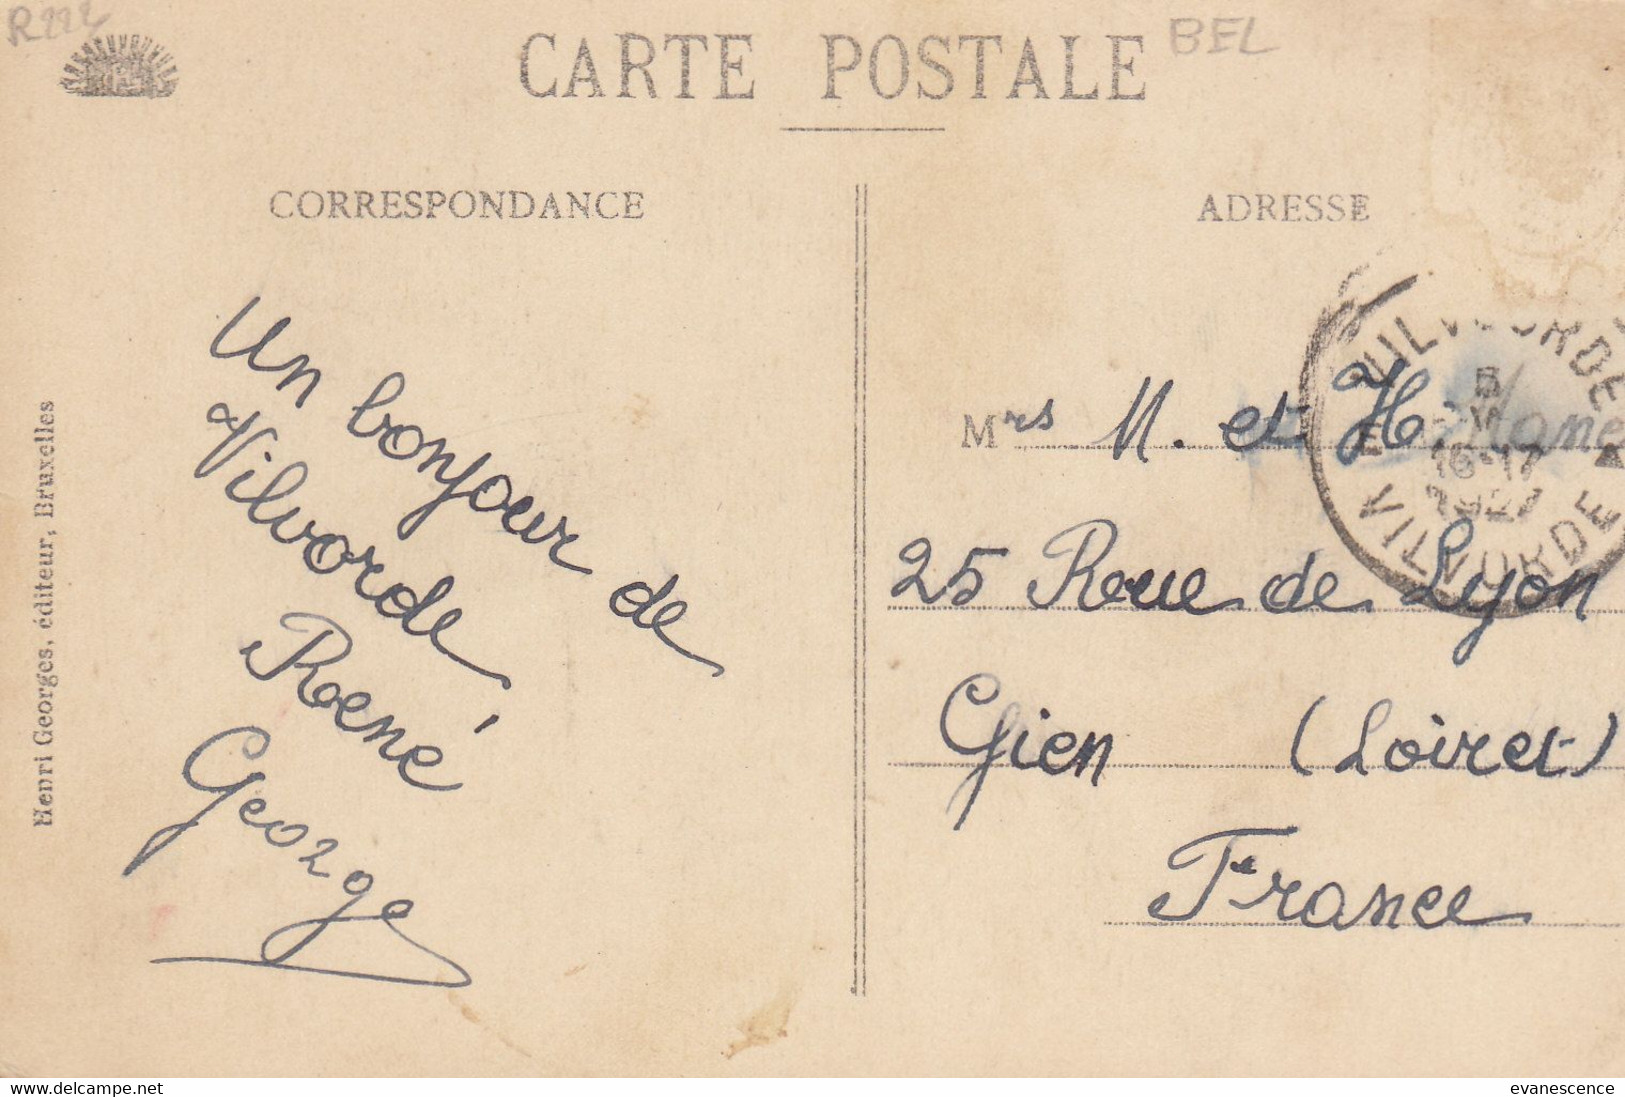 R222
CARTE POSTALE
BEL
CORRESPONDANCE
ADRESSE
Un bonjour de
Vilvorde
René
George
Henri Georges, éditeur, Bruxelles
Mrs M. et H.
25 Roue de Lyon
Gien (Loiret)
France
VILVOORDE
5
16-17
1927
VILVORDE
delcampe.net
evanescence